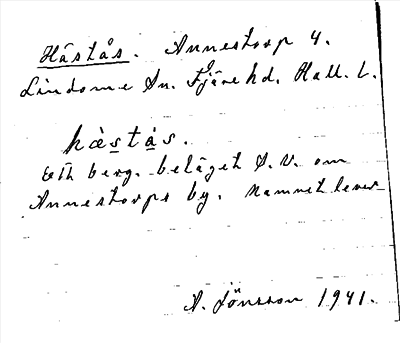 Hästås. Annestorp 4.
Lindome Sn. Fjäre hd. Hall. l.
hæstås.
Ett berg, beläget S. V. om
Annestorps by. Namnet lever
A. Jönsson 1941.